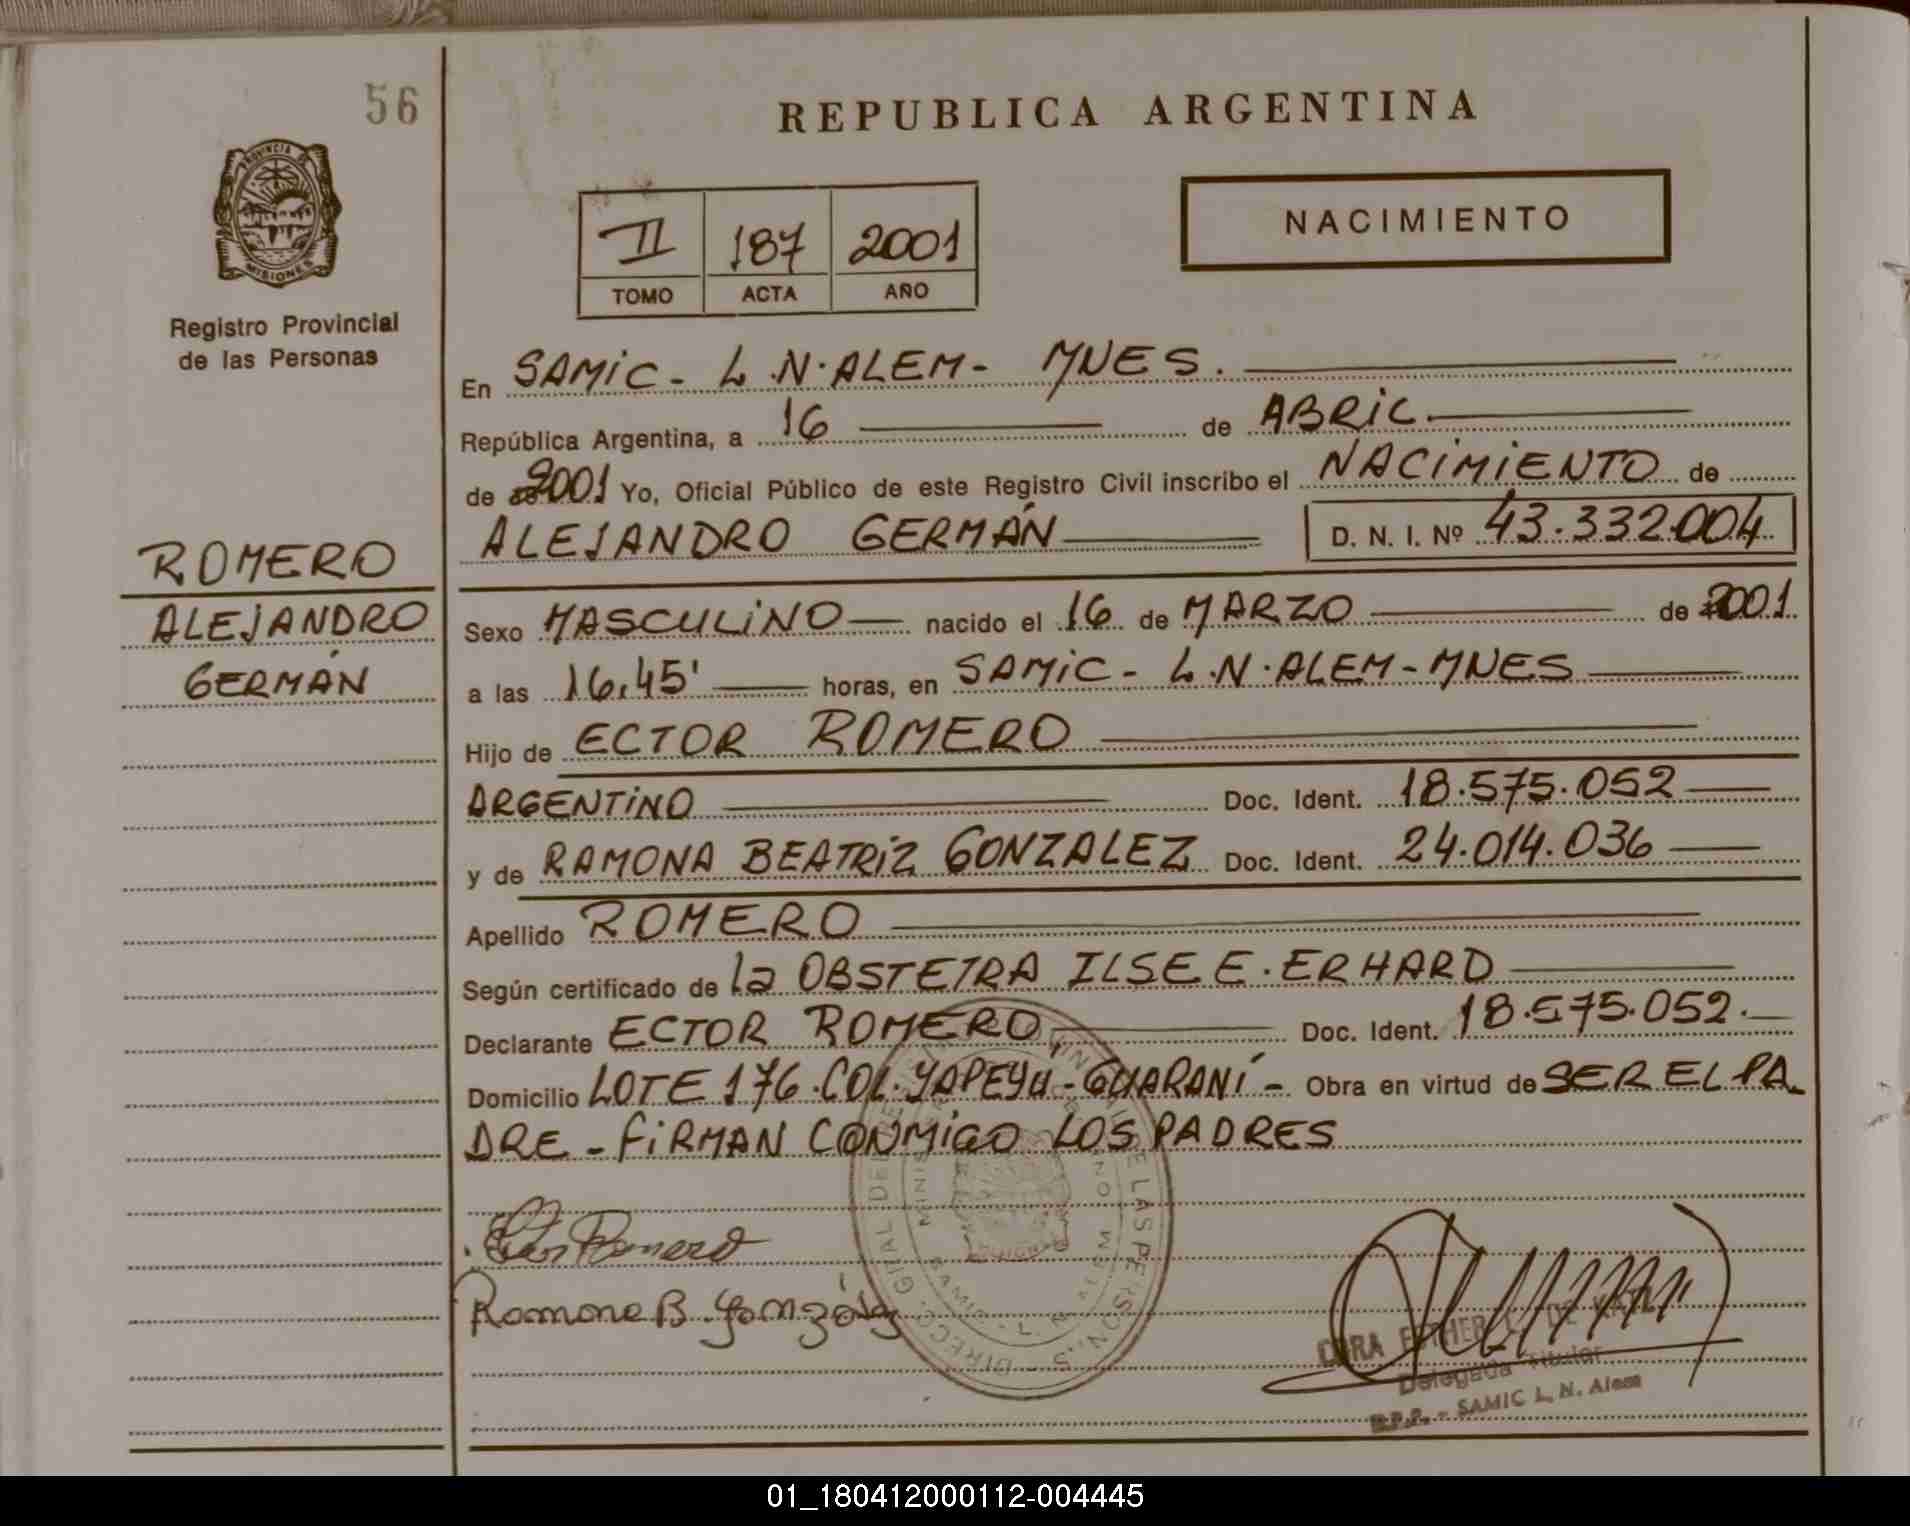 56
REPUBLICA ARGENTINA
PROVINCIA DE
MISIONES
Registro Provincial
de las Personas
II 187 2001
TOMO ACTA AÑO
NACIMIENTO
En SAMIC - L.N.ALEM - MNES.
República Argentina, a 16 de ABRIL
de 2001 Yo, Oficial Público de este Registro Civil inscribo el NACIMIENTO de
ALEJANDRO GERMÁN D. N. I. Nº 43.332.004
ROMERO
ALEJANDRO
GERMÁN
Sexo MASCULINO nacido el 16 de MARZO de 2001
a las 16,45' horas, en SAMIC - L.N.ALEM - MNES
Hijo de ECTOR ROMERO
ARGENTINO Doc. Ident. 18.575.052
y de RAMONA BEATRIZ GONZALEZ Doc. Ident. 24.014.036
Apellido ROMERO
Según certificado de la OBSTETRA ILSE E. ERHARD
Declarante ECTOR ROMERO Doc. Ident. 18.575.052.
Domicilio LOTE 176. COL. YAPEYÚ - GUARANÍ - Obra en virtud de SER EL PA
DRE - FIRMAN CONMIGO LOS PADRES
Ector Romero
Ramona B. Gonzál
ESTHER
Delegada Titular
R.P.P. - SAMIC L. N. Alem
01_180412000112-004445